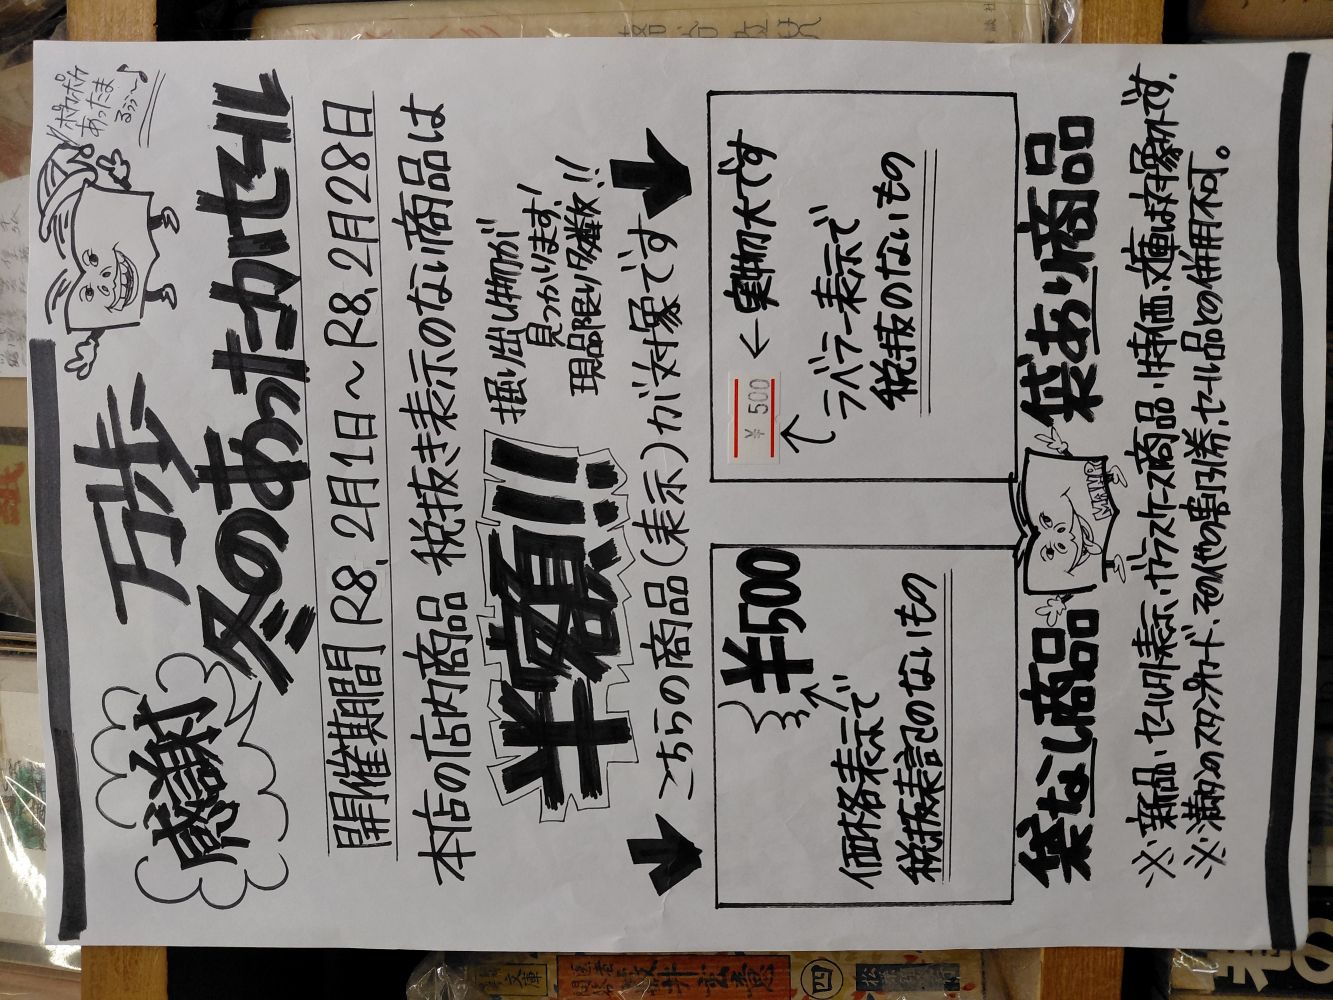 感謝
万歩
冬のあったカイセール
ポカポカ
あったま
るぅぅ〜♪
開催期間 R8.2月1日〜R8.2月28日
本店の店内商品 税抜き表示のない商品は
半額!!
掘り出し物が
見つかります!
現品限り多数!!
こちらの商品(表示)が対象です
¥500
価格表示で
税抜表記のないもの
¥500
←実物大です
ラベラー表示で
税抜のないもの
袋なし商品
MANPO
袋あり商品
※新品・セール引表示・ガラスケース商品・特価文庫は対象外です.
※満分のスタンプカード、その他の割引券、セール品との併用不可。
文庫
四